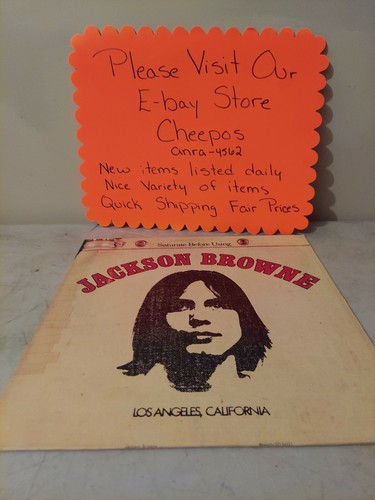 Please Visit Our
E-bay Store
Cheepos
anra-4562
New items listed daily
Nice Variety of items
Quick Shipping Fair Prices
Saturate Before Using
JACKSON BROWNE
LOS ANGELES, CALIFORNIA